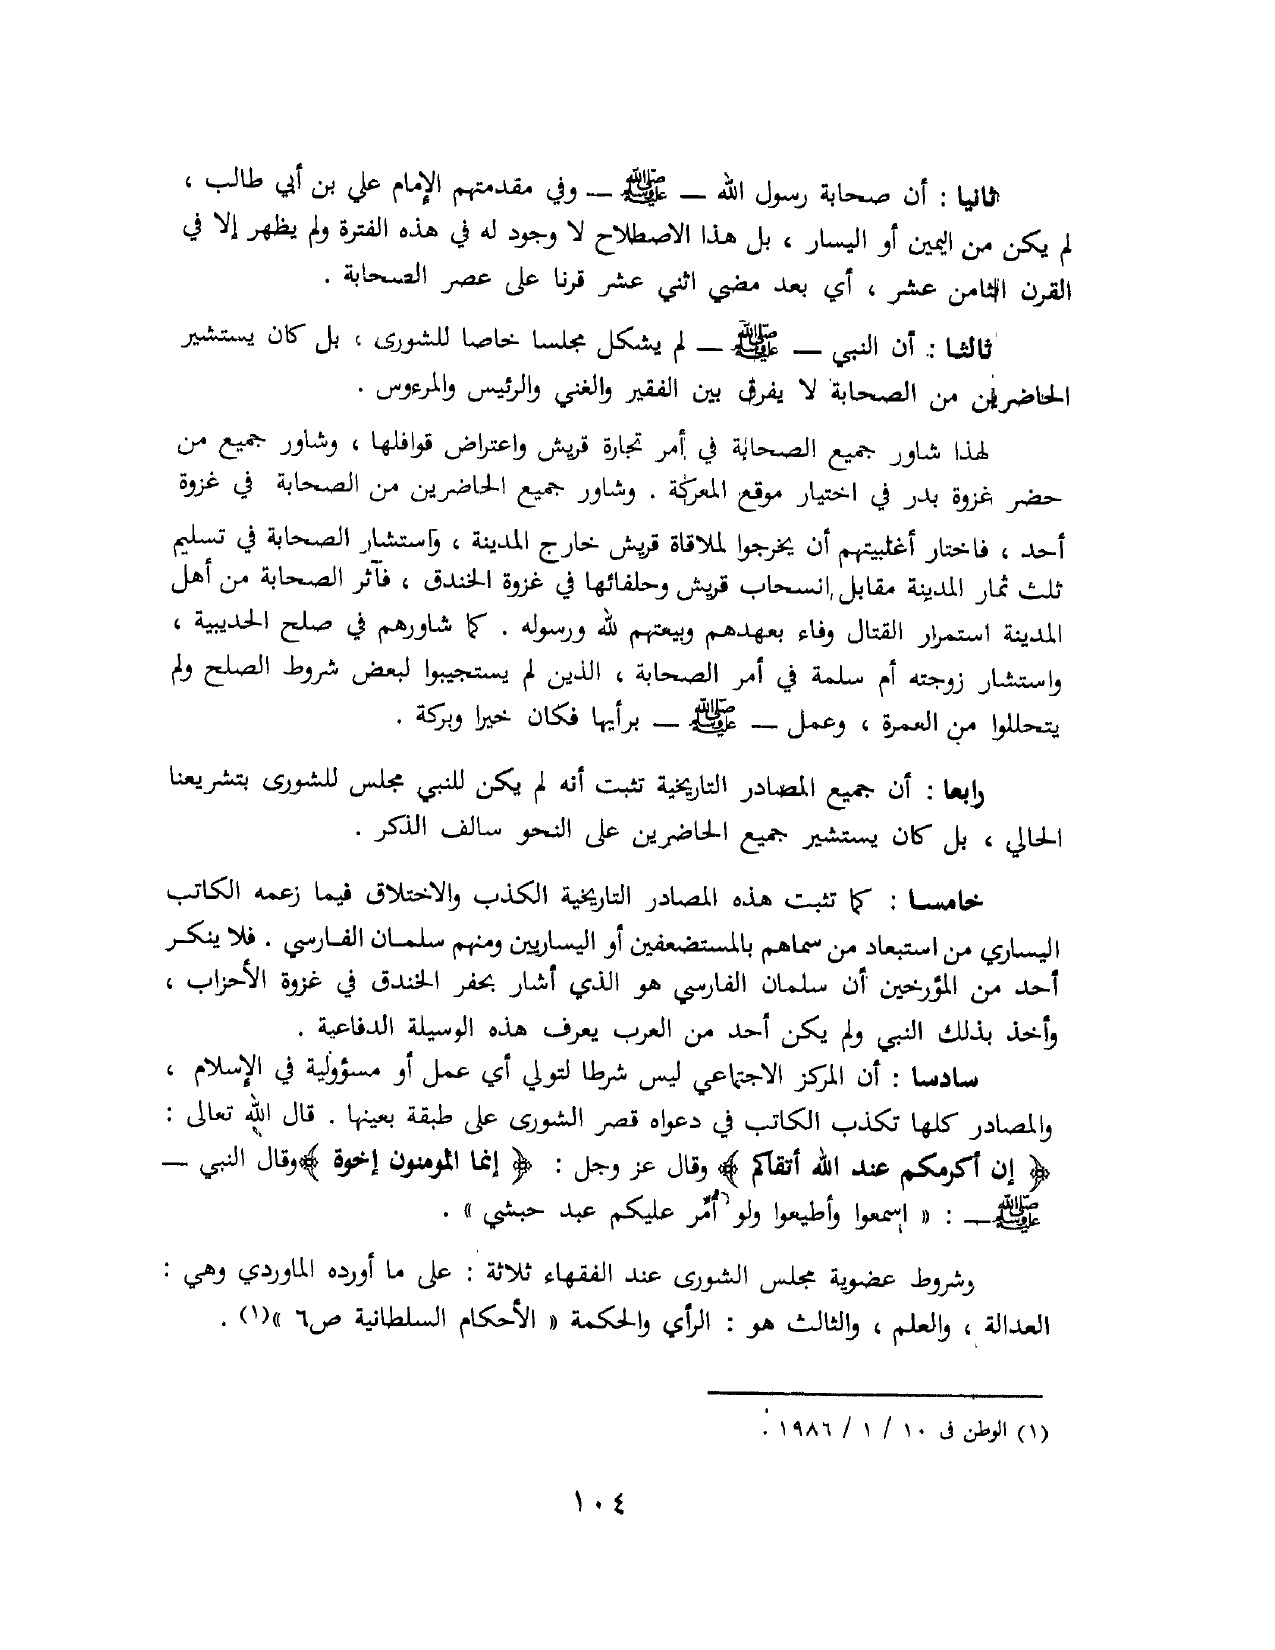 ثانيا : أن صحابة رسول الله — ﷺ — وفي مقدمتهم الإمام علي بن أبي طالب ،
لم يكن من اليمين أو اليسار ، بل هذا الاصطلاح لا وجود له في هذه الفترة ولم يظهر إلا في
القرن الثامن عشر ، أي بعد مضي اثني عشر قرنا على عصر الصحابة .
ثالثا : أن النبي — ﷺ — لم يشكل مجلسا خاصا للشورى ، بل كان يستشير
الحاضرين من الصحابة لا يفرق بين الفقير والغني والرئيس والمرءوس .
لهذا شاور جميع الصحابة في أمر تجارة قريش واعتراض قوافلها ، وشاور جميع من
حضر غزوة بدر في اختيار موقع المعركة . وشاور جميع الحاضرين من الصحابة في غزوة
أحد ، فاختار أغلبيتهم أن يخرجوا لملاقاة قريش خارج المدينة ، واستشار الصحابة في تسليم
ثلث ثمار المدينة مقابل انسحاب قريش وحلفائها في غزوة الخندق ، فآثر الصحابة من أهل
المدينة استمرار القتال وفاء بعهدهم وبيعتهم لله ورسوله . كما شاورهم في صلح الحديبية ،
واستشار زوجته أم سلمة في أمر الصحابة ، الذين لم يستجيبوا لبعض شروط الصلح ولم
يتحللوا من العمرة ، وعمل — ﷺ — برأيها فكان خيرا وبركة .
رابعا : أن جميع المصادر التاريخية تثبت أنه لم يكن للنبي مجلس للشورى بتشريعنا
الحالي ، بل كان يستشير جميع الحاضرين على النحو سالف الذكر .
خامسا : كما تثبت هذه المصادر التاريخية الكذب والاختلاق فيما زعمه الكاتب
اليساري من استبعاد من سماهم بالمستضعفين أو اليساريين ومنهم سلمان الفارسي . فلا ينكر
أحد من المؤرخين أن سلمان الفارسي هو الذي أشار بحفر الخندق في غزوة الأحزاب ،
وأخذ بذلك النبي ولم يكن أحد من العرب يعرف هذه الوسيلة الدفاعية .
سادسا : أن المركز الاجتماعي ليس شرطا لتولي أي عمل أو مسؤولية في الإسلام ،
والمصادر كلها تكذب الكاتب في دعواه قصر الشورى على طبقة بعينها . قال الله تعالى :
﴿ إن أكرمكم عند الله أتقاكم ﴾ وقال عز وجل : ﴿ إنما المؤمنون إخوة ﴾ وقال النبي —
ﷺ — : « إسمعوا وأطيعوا ولو أمّر عليكم عبد حبشي » .
وشروط عضوية مجلس الشورى عند الفقهاء ثلاثة : على ما أورده الماوردي وهي :
العدالة ، والعلم ، والثالث هو : الرأي والحكمة « الأحكام السلطانية ص٦ »(١) .
(١) الوطن فى ١٠ / ١ / ١٩٨٦ .
١٠٤